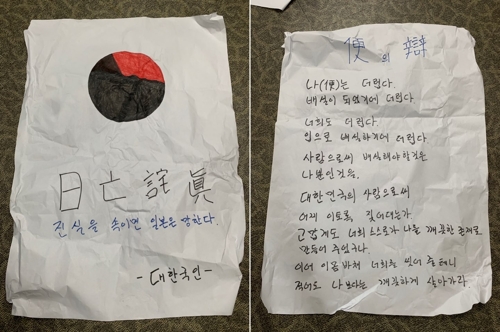 日亡詫眞
진실을 속이면 일본은 망한다.
-대한국인-
便의 辯
나(便)는 더럽다.
배설이 되었기에 더럽다
너희도 더럽다.
입으로 배설하기에 더럽다.
사람으로써 배설해야할것은
나뿐인것을.
대한민국의 사람으로써
어찌 이토록, 짖어대는가
고맙게도 너희 스스로가 나를 깨끗한 존재로
만들어 주었구나.
이 몸바쳐 너희를 씻어 줄테니
적어도 나 보다는 깨끗하게 살아가라.